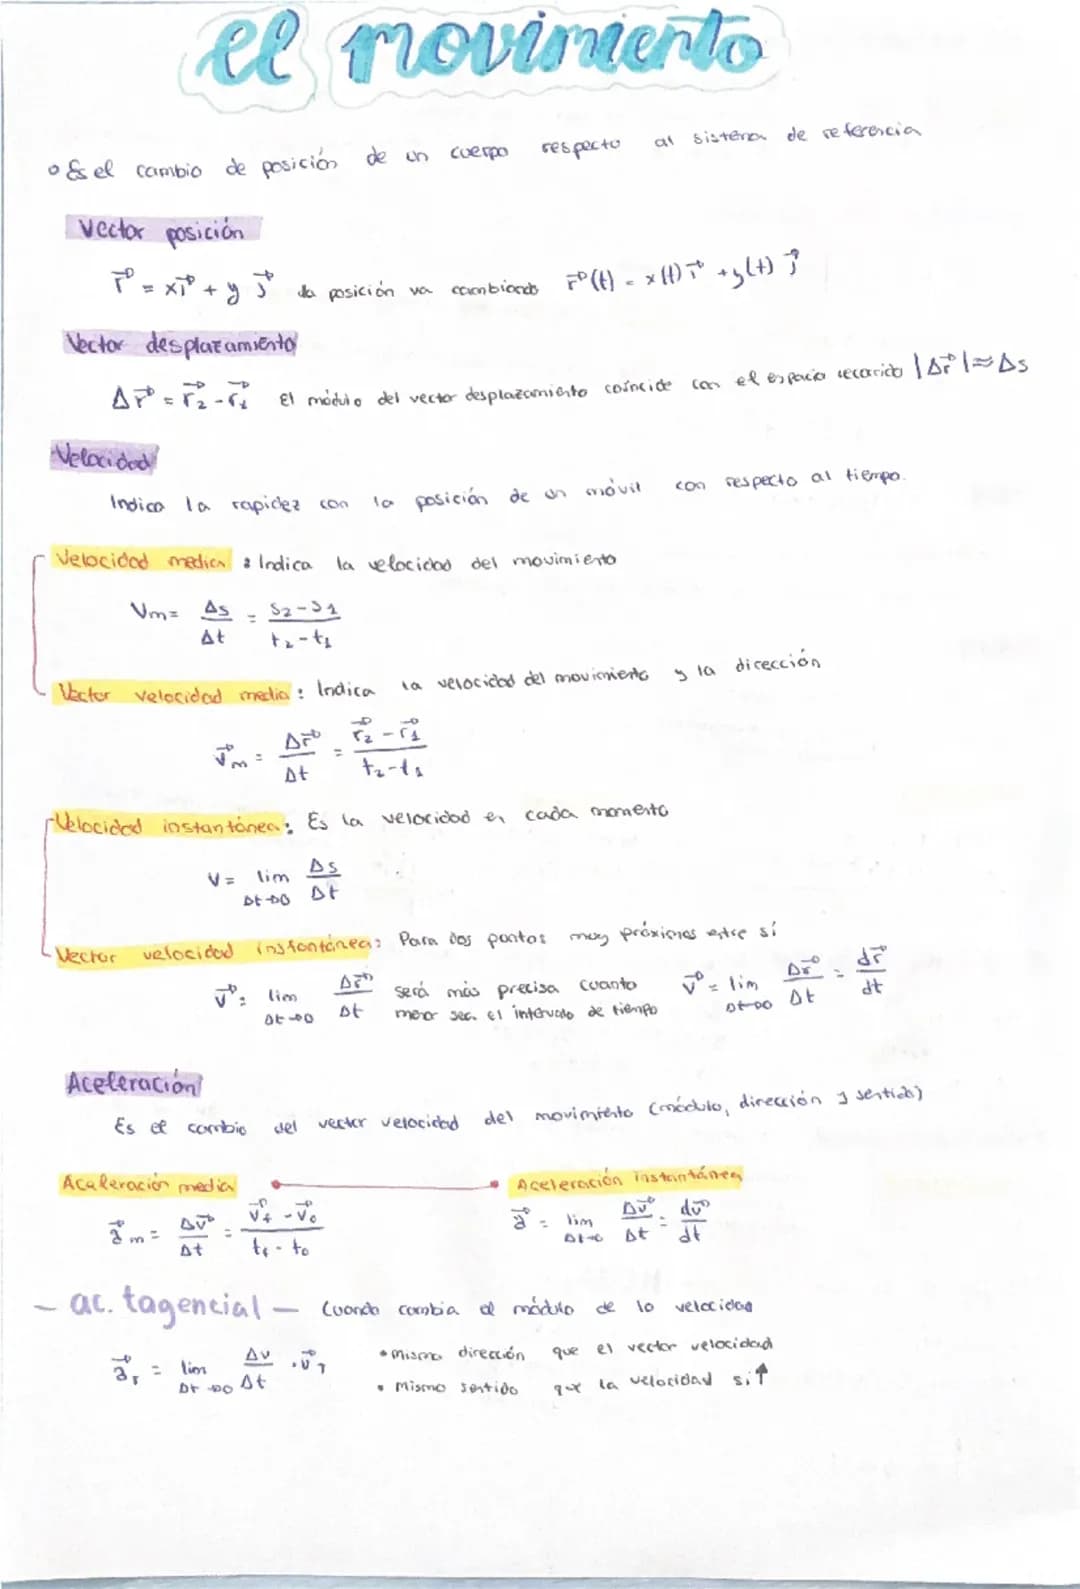 el movimiento
• Es el cambio de posición de un cuerpo respecto al sistema de referencia
Vector posición
r⃗ = xi⃗ + y j⃗ la posición va cambiando r⃗(t) = x(t) i⃗ + y(t) j⃗
Vector desplazamiento
Δr⃗ = r⃗₂ - r⃗₁ El módulo del vector desplazamiento coincide con el espacio recorrido |Δr⃗| ≈ Δs
Velocidad
Indica la rapidez con la posición de un móvil con respecto al tiempo.
Velocidad media : Indica la velocidad del movimiento
Vm = Δs/Δt = (s₂-s₁)/(t₂-t₁)
Vector velocidad media : Indica la velocidad del movimiento y la dirección
v⃗m = Δr⃗/Δt = (r⃗₂ - r⃗₁)/(t₂-t₁)
Velocidad instantánea : Es la velocidad en cada momento
V = lim Δt→0 Δs/Δt
Vector velocidad instantánea : Para dos puntos muy próximos entre sí
v⃗ = lim Δt→0 Δr⃗/Δt será más precisa cuanto menor sea el intervalo de tiempo v⃗ = lim Δt→0 Δr⃗/Δt = dr⃗/dt
Aceleración
Es el cambio del vector velocidad del movimiento (módulo, dirección y sentido)
Aceleración media Aceleración instantánea
a⃗m = Δv⃗/Δt = (v⃗f - v⃗₀)/(tf - t₀) a⃗ = lim Δt→0 Δv⃗/Δt = dv⃗/dt
– ac. tagencial – Cuando cambia el módulo de la velocidad
a⃗T = lim Δt→0 Δv/Δt · v⃗T • Misma dirección que el vector velocidad
• Mismo sentido que la velocidad si ↑